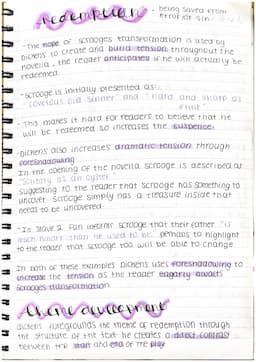 redemption - being saved from
error or sin
-The hope of scrooges transformation is used by
Dickens to create and build tension throughout the
novella, the reader anticipates if he will actually be
redeemed.
-Scrooge is initially presented as
"covetous old sinner" and "hard and sharp as
flint"
-This makes it hard for readers to believe that he
will be redeemed so increases the suspence.
-Dickens also increases dramatic tension through
foreshadowing
In the opening of the novella scrooge is described as
"Solitary as an oyster"
suggesting to the reader that scrooge has something to
uncover. Scrooge simply has a treasure inside that
needs to be uncovered
"In Stave 2 Fan informs scrooge that their father "is
much kinder than he used to be" perhaps to highlight
to the reader that scrooge too will be able to change.
In both of these examples Dickens uses foreshadowing to
increase the tension as the reader eagerly awaits
scrooges transformation
Theme development
dickens foregrounds the theme of redemption through
the structure of the text. he creates a direct contrast
between the start and end of the play